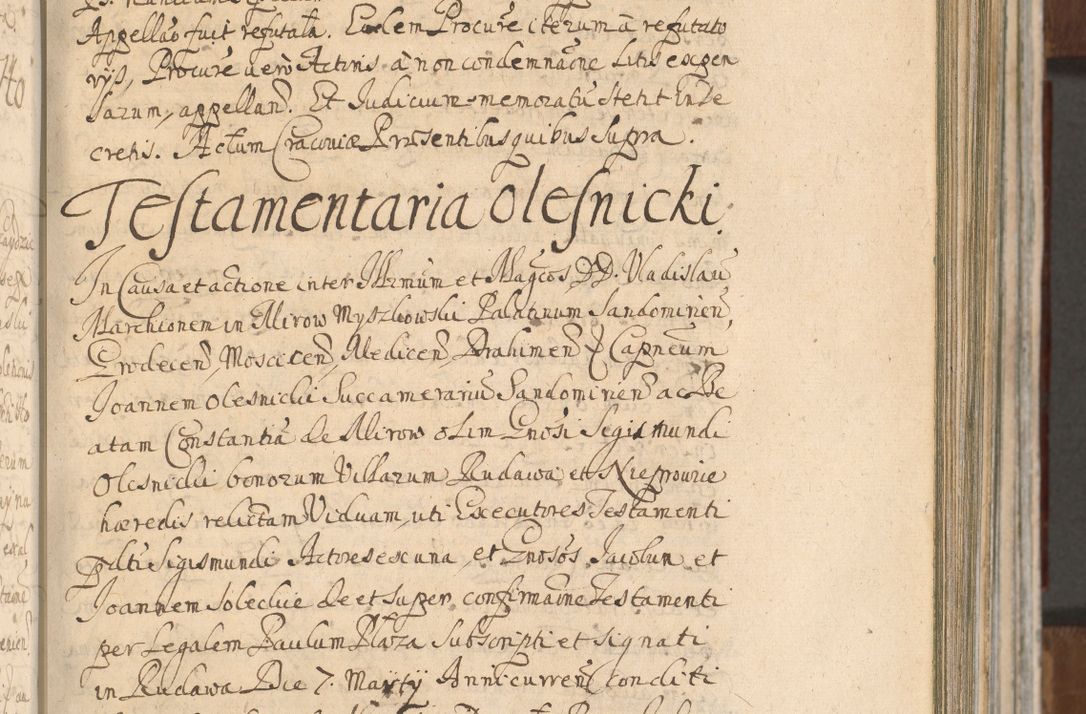 Appellão fuit refutata. Eadem Procure iterum ã refutato
rijs, Procure vero Actris à non condemnãone Litis expen
sarum, appellan̄. Et Judicium memoratũ stetit in De
cretis. Actum Cracoviæ Præsentibus quibus supra.
Testamentaria Olesnicki.
In Causa et actione inter Illrmũm et Magc̃os DD. Vladislaũ
Marchionem in Mirow Myszkowski Palatinum Sandomirien̄,
Grodecen̄, Moscicen̄, Medicen̄, Drahimen̄ Capn̄eum
Joannem Olesnicki Succamerariũ Sandomirien̄ ac Be
atam Constantiã de Mirow olim Gnosi Sigismundi
Olesnicki bonorum Villarum Rudawa, et Nieprowie
hæredis relictam Viduam, uti Executores Testamenti
pdti Sigismundi Actores ex una, et Gnosos Jacobum et
Joannem Sobeckie de et super confirmãone Testamenti
per Legalem Paulum Plaza Subscripti et signati
in Rudawa Die 7. Martij Anni curren̄ Conditi